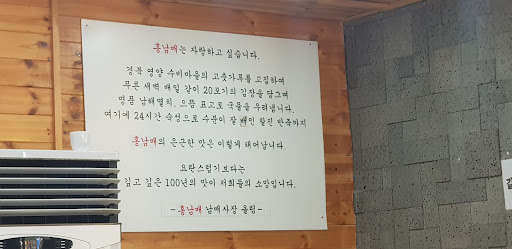 홍남매는 자랑하고 싶습니다.
경북 영양 수비마을의 고춧가루를 고집하여
푸른 새벽 매일 같이 20포기의 김장을 담그며
명품 남해멸치, 으뜸 표고로 국물을 우려냅니다.
여기에 24시간 숙성으로 수분이 잘 배인 활진 반죽까지
홍남매의 은근한 맛은 이렇게 태어납니다.
요란스럽기보다는
깊고 깊은 100년의 맛이 저희들의 소망입니다.
- 홍남매 남매사장 올림 -